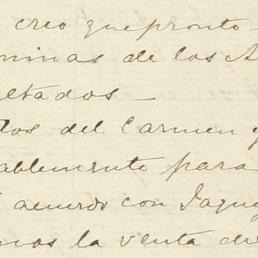 creo que pronto
minas de los A
ltados —
dos del Carmen y
ablemente para
acuerdo con Jaqu
mos la venta de